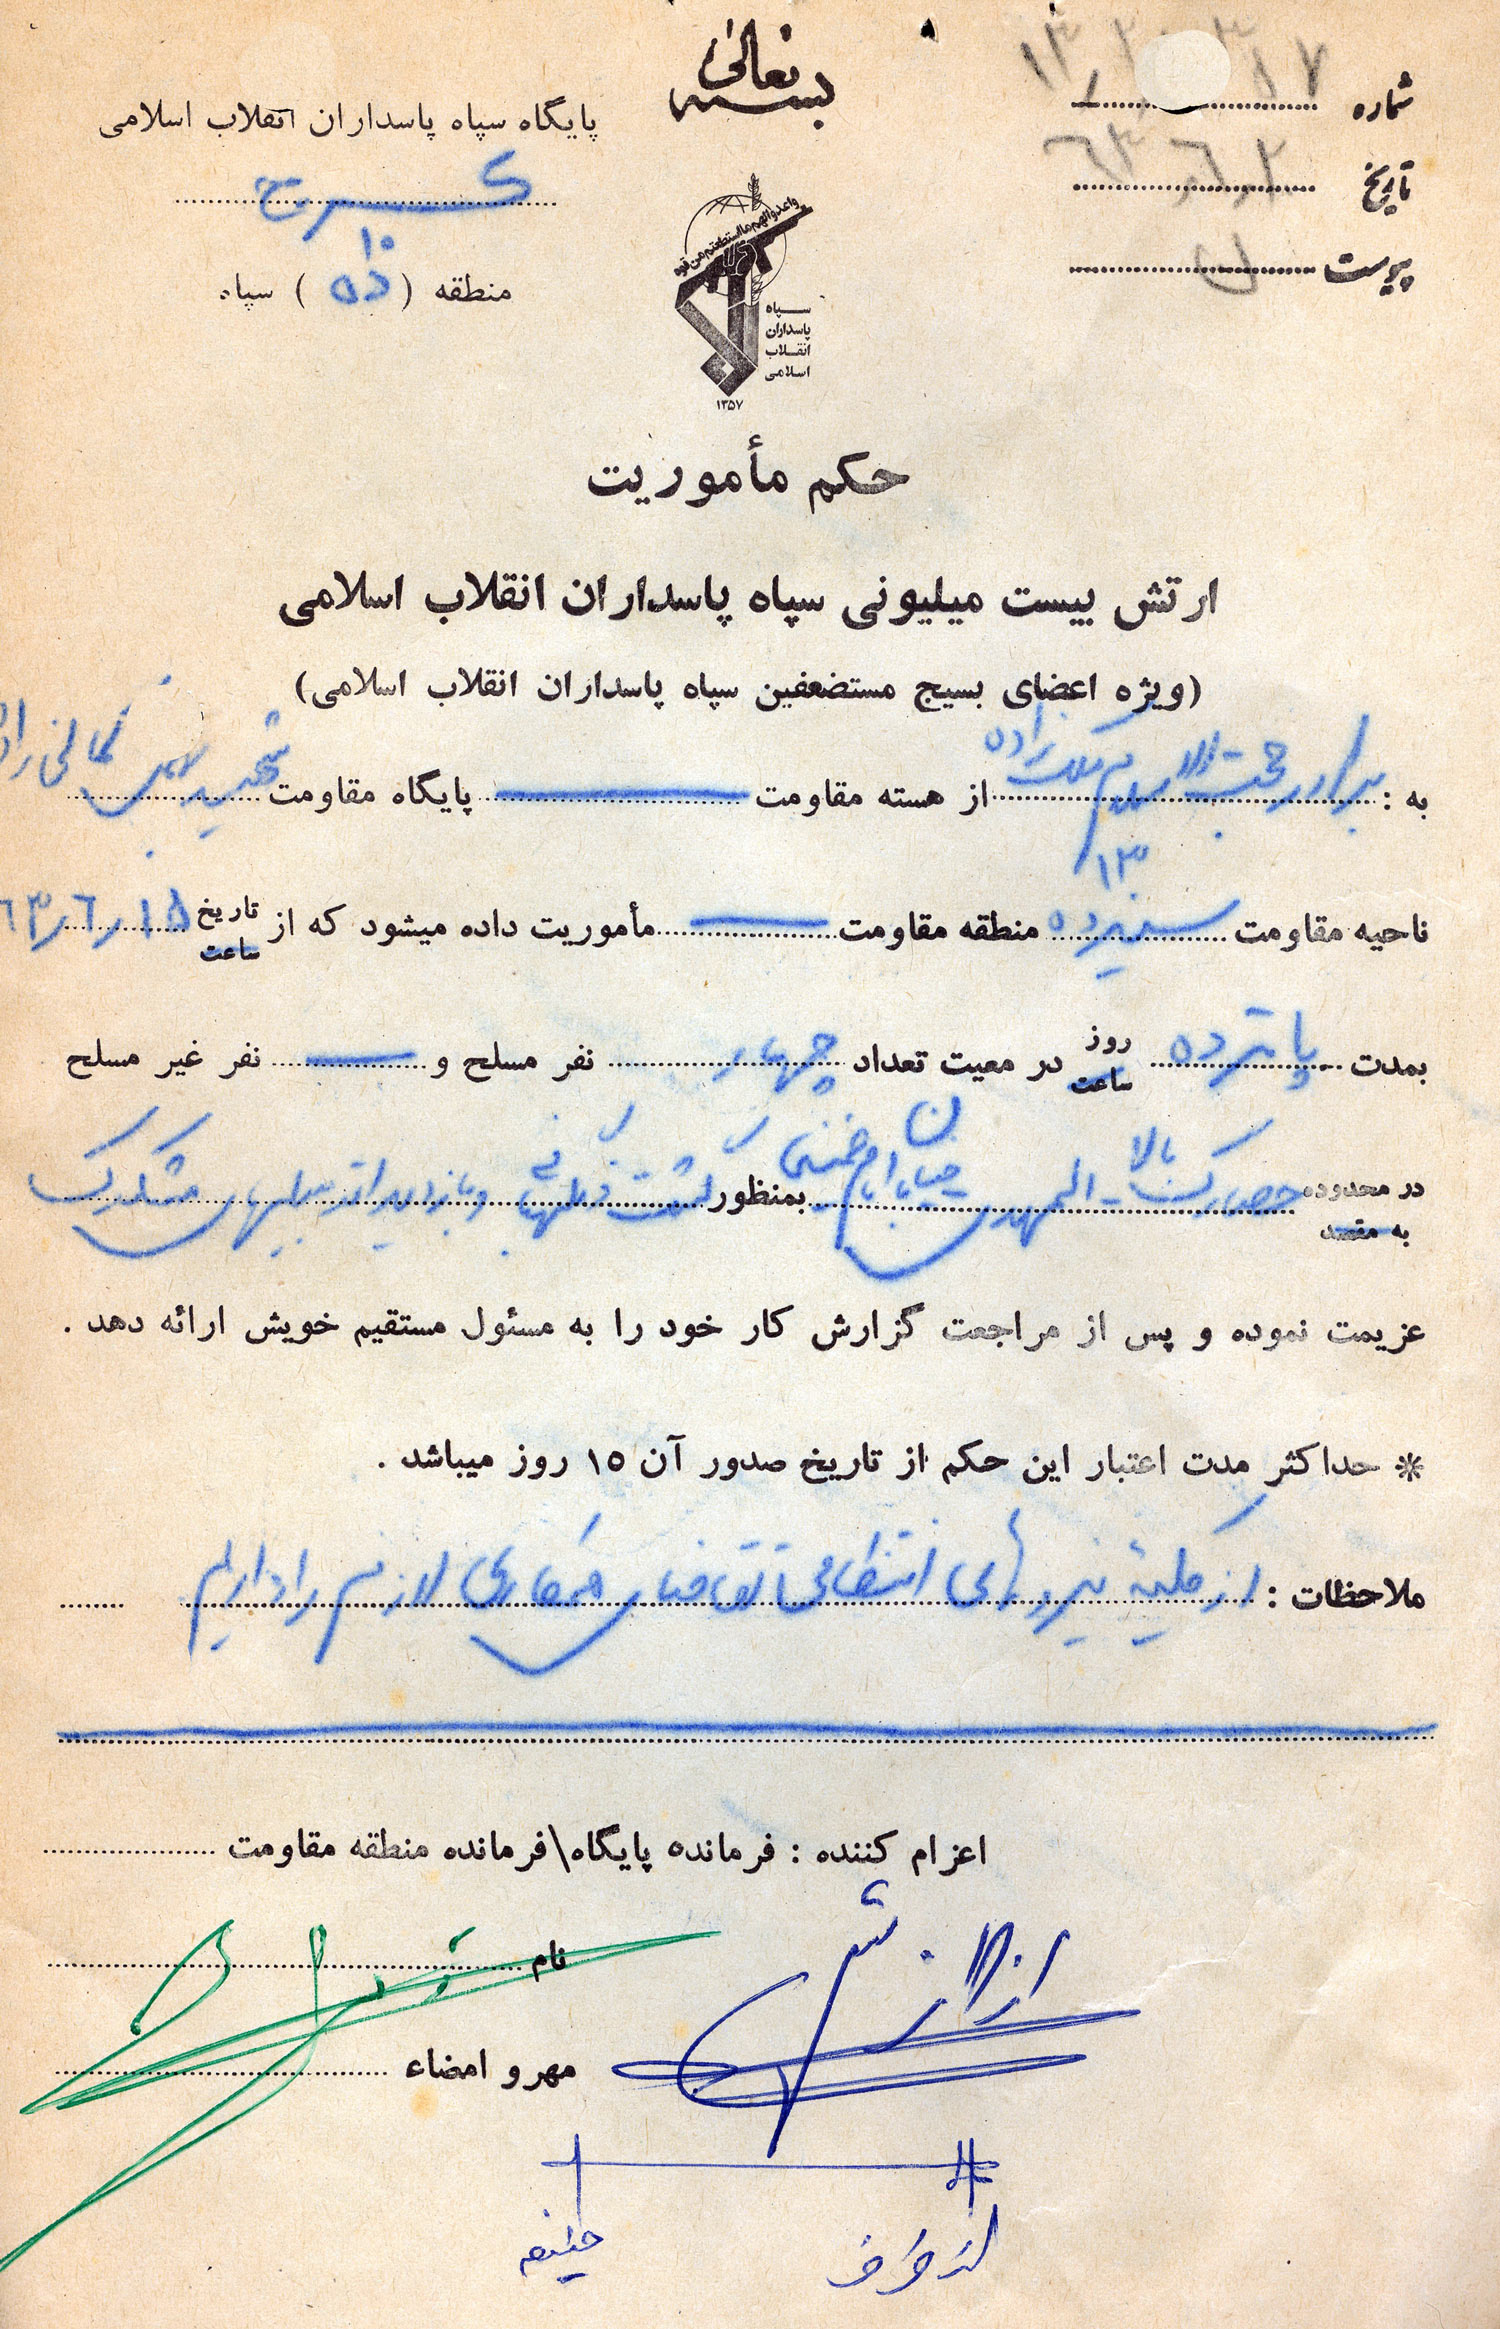 بسمه تعالی
شماره
تاریخ ۶۳،۶،۲
پیوست
پایگاه سپاه پاسداران انقلاب اسلامی
کرج
۱۰
منطقه ( ده ) سپاه
واعدوا لهم ما استطعتم من قوه
سپاه
پاسداران
انقلاب
اسلامی
۱۳۵۷
حکم مأموریت
ارتش بیست میلیونی سپاه پاسداران انقلاب اسلامی
(ویژه اعضای بسیج مستضعفین سپاه پاسداران انقلاب اسلامی)
به : برادر حجت الاسلام ملک زاده از هسته مقاومت پایگاه مقاومت شهید
۱۳
ناحیه مقاومت سیزده منطقه مقاومت مأموریت داده میشود که از تاریخ ۶۳٫۶٫۱۵
ساعت
بمدت پانزده روز در معیت تعداد چهار نفر مسلح و نفر غیر مسلح
ساعت
در محدوده حصارک بالا - المهدی - خیابان امام خمینی بمنظور گشت و بازدید از اتومبیلهای مشکوک
به مقصد
عزیمت نموده و پس از مراجعت گزارش کار خود را به مسئول مستقیم خویش ارائه دهد .
* حداکثر مدت اعتبار این حکم از تاریخ صدور آن ۱۵ روز میباشد .
ملاحظات : از کلیه نیروهای انتظامی تقاضای همکاری لازم را داریم
اعزام کننده : فرمانده پایگاه\فرمانده منطقه مقاومت
نام
مهر و امضاء